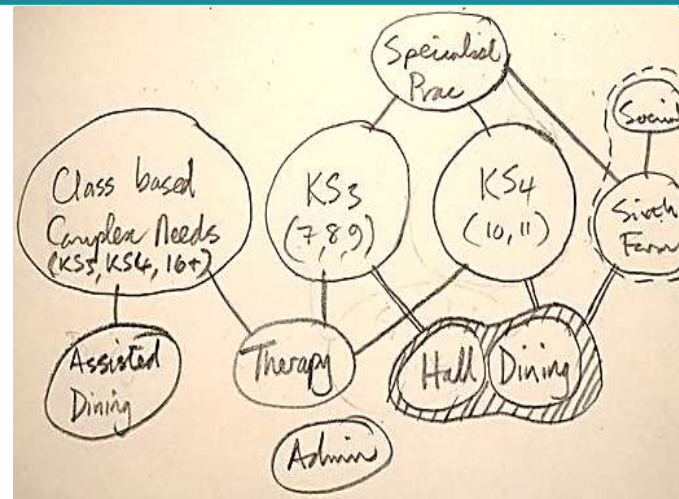 Specialist
Prac
Social
Class based
Complex Needs
(KS3, KS4, 16+)
KS3
(7,8,9)
KS4
(10,11)
Sixth
Form
Assisted
Dining
Therapy
Hall
Dining
Admin